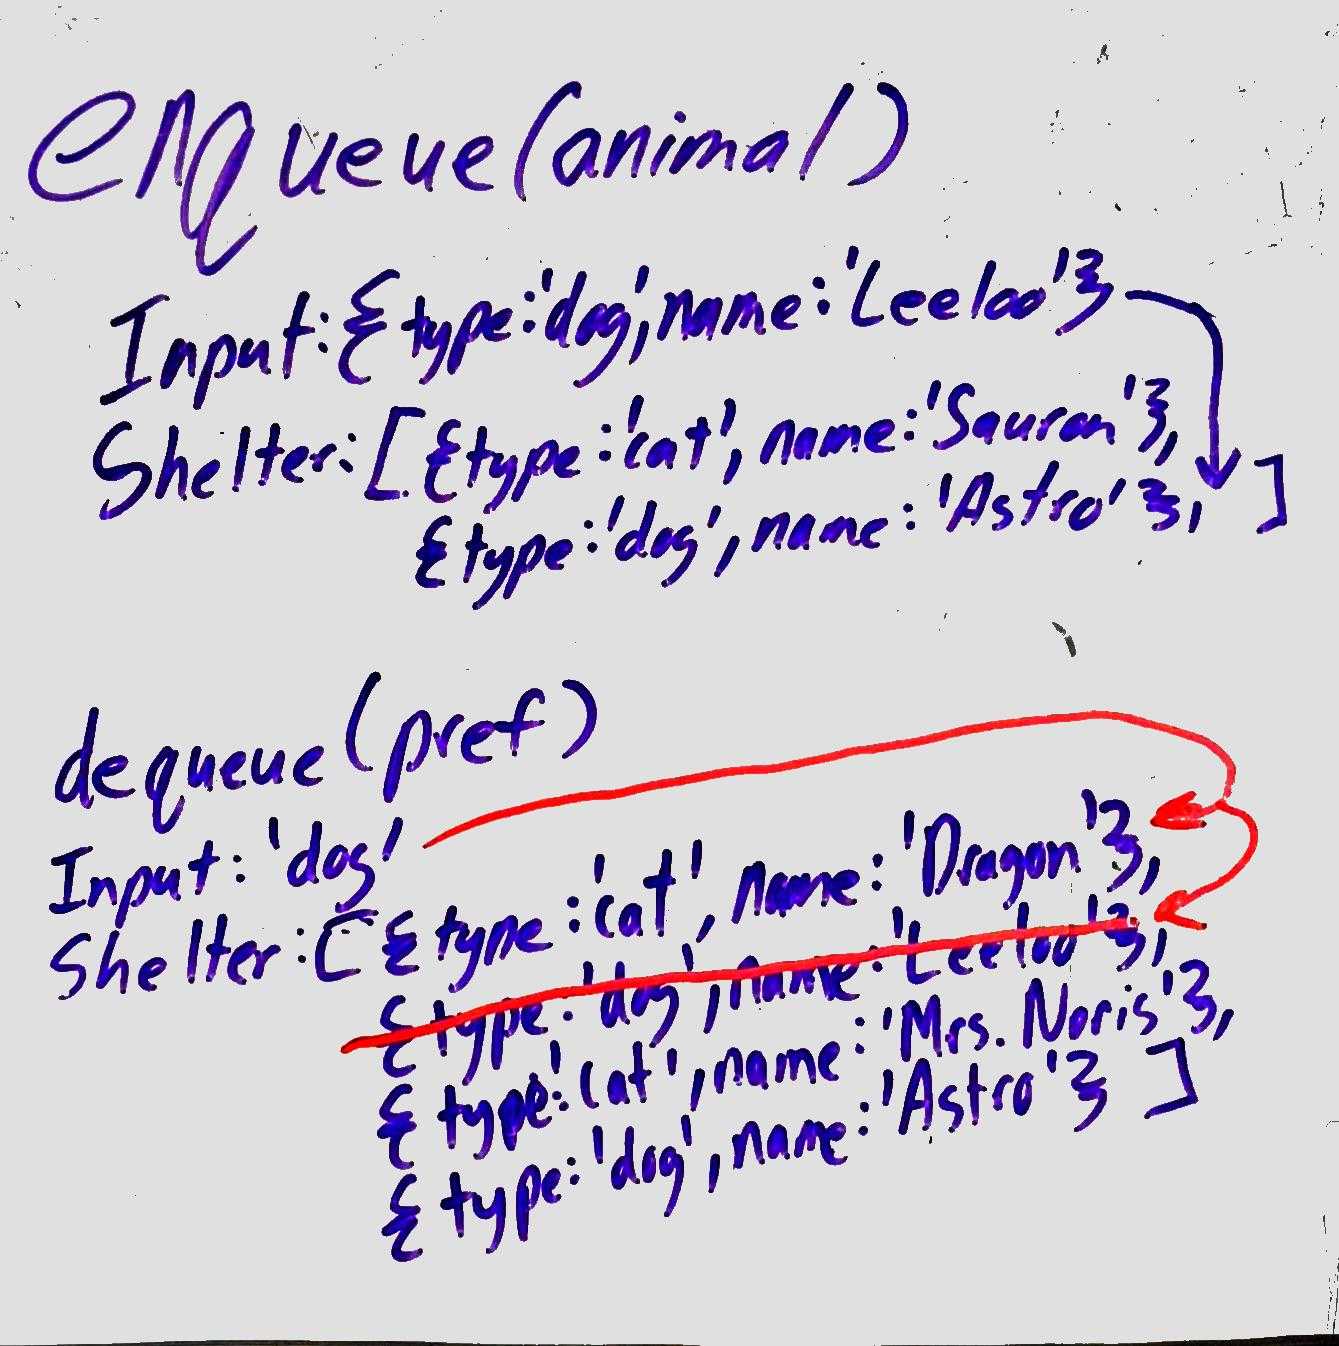 enqueue(animal)
Input:{type:'dog',name:'Leeloo'}
Shelter:[{type:'cat',name:'Sauron'},
{type:'dog',name:'Astro'}, ]
dequeue(pref)
Input:'dog'
Shelter:[{type:'cat',name:'Dragon'},
{type:'dog',name:'Leeloo'},
{type:'cat',name:'Mrs. Noris'},
{type:'dog',name:'Astro'} ]